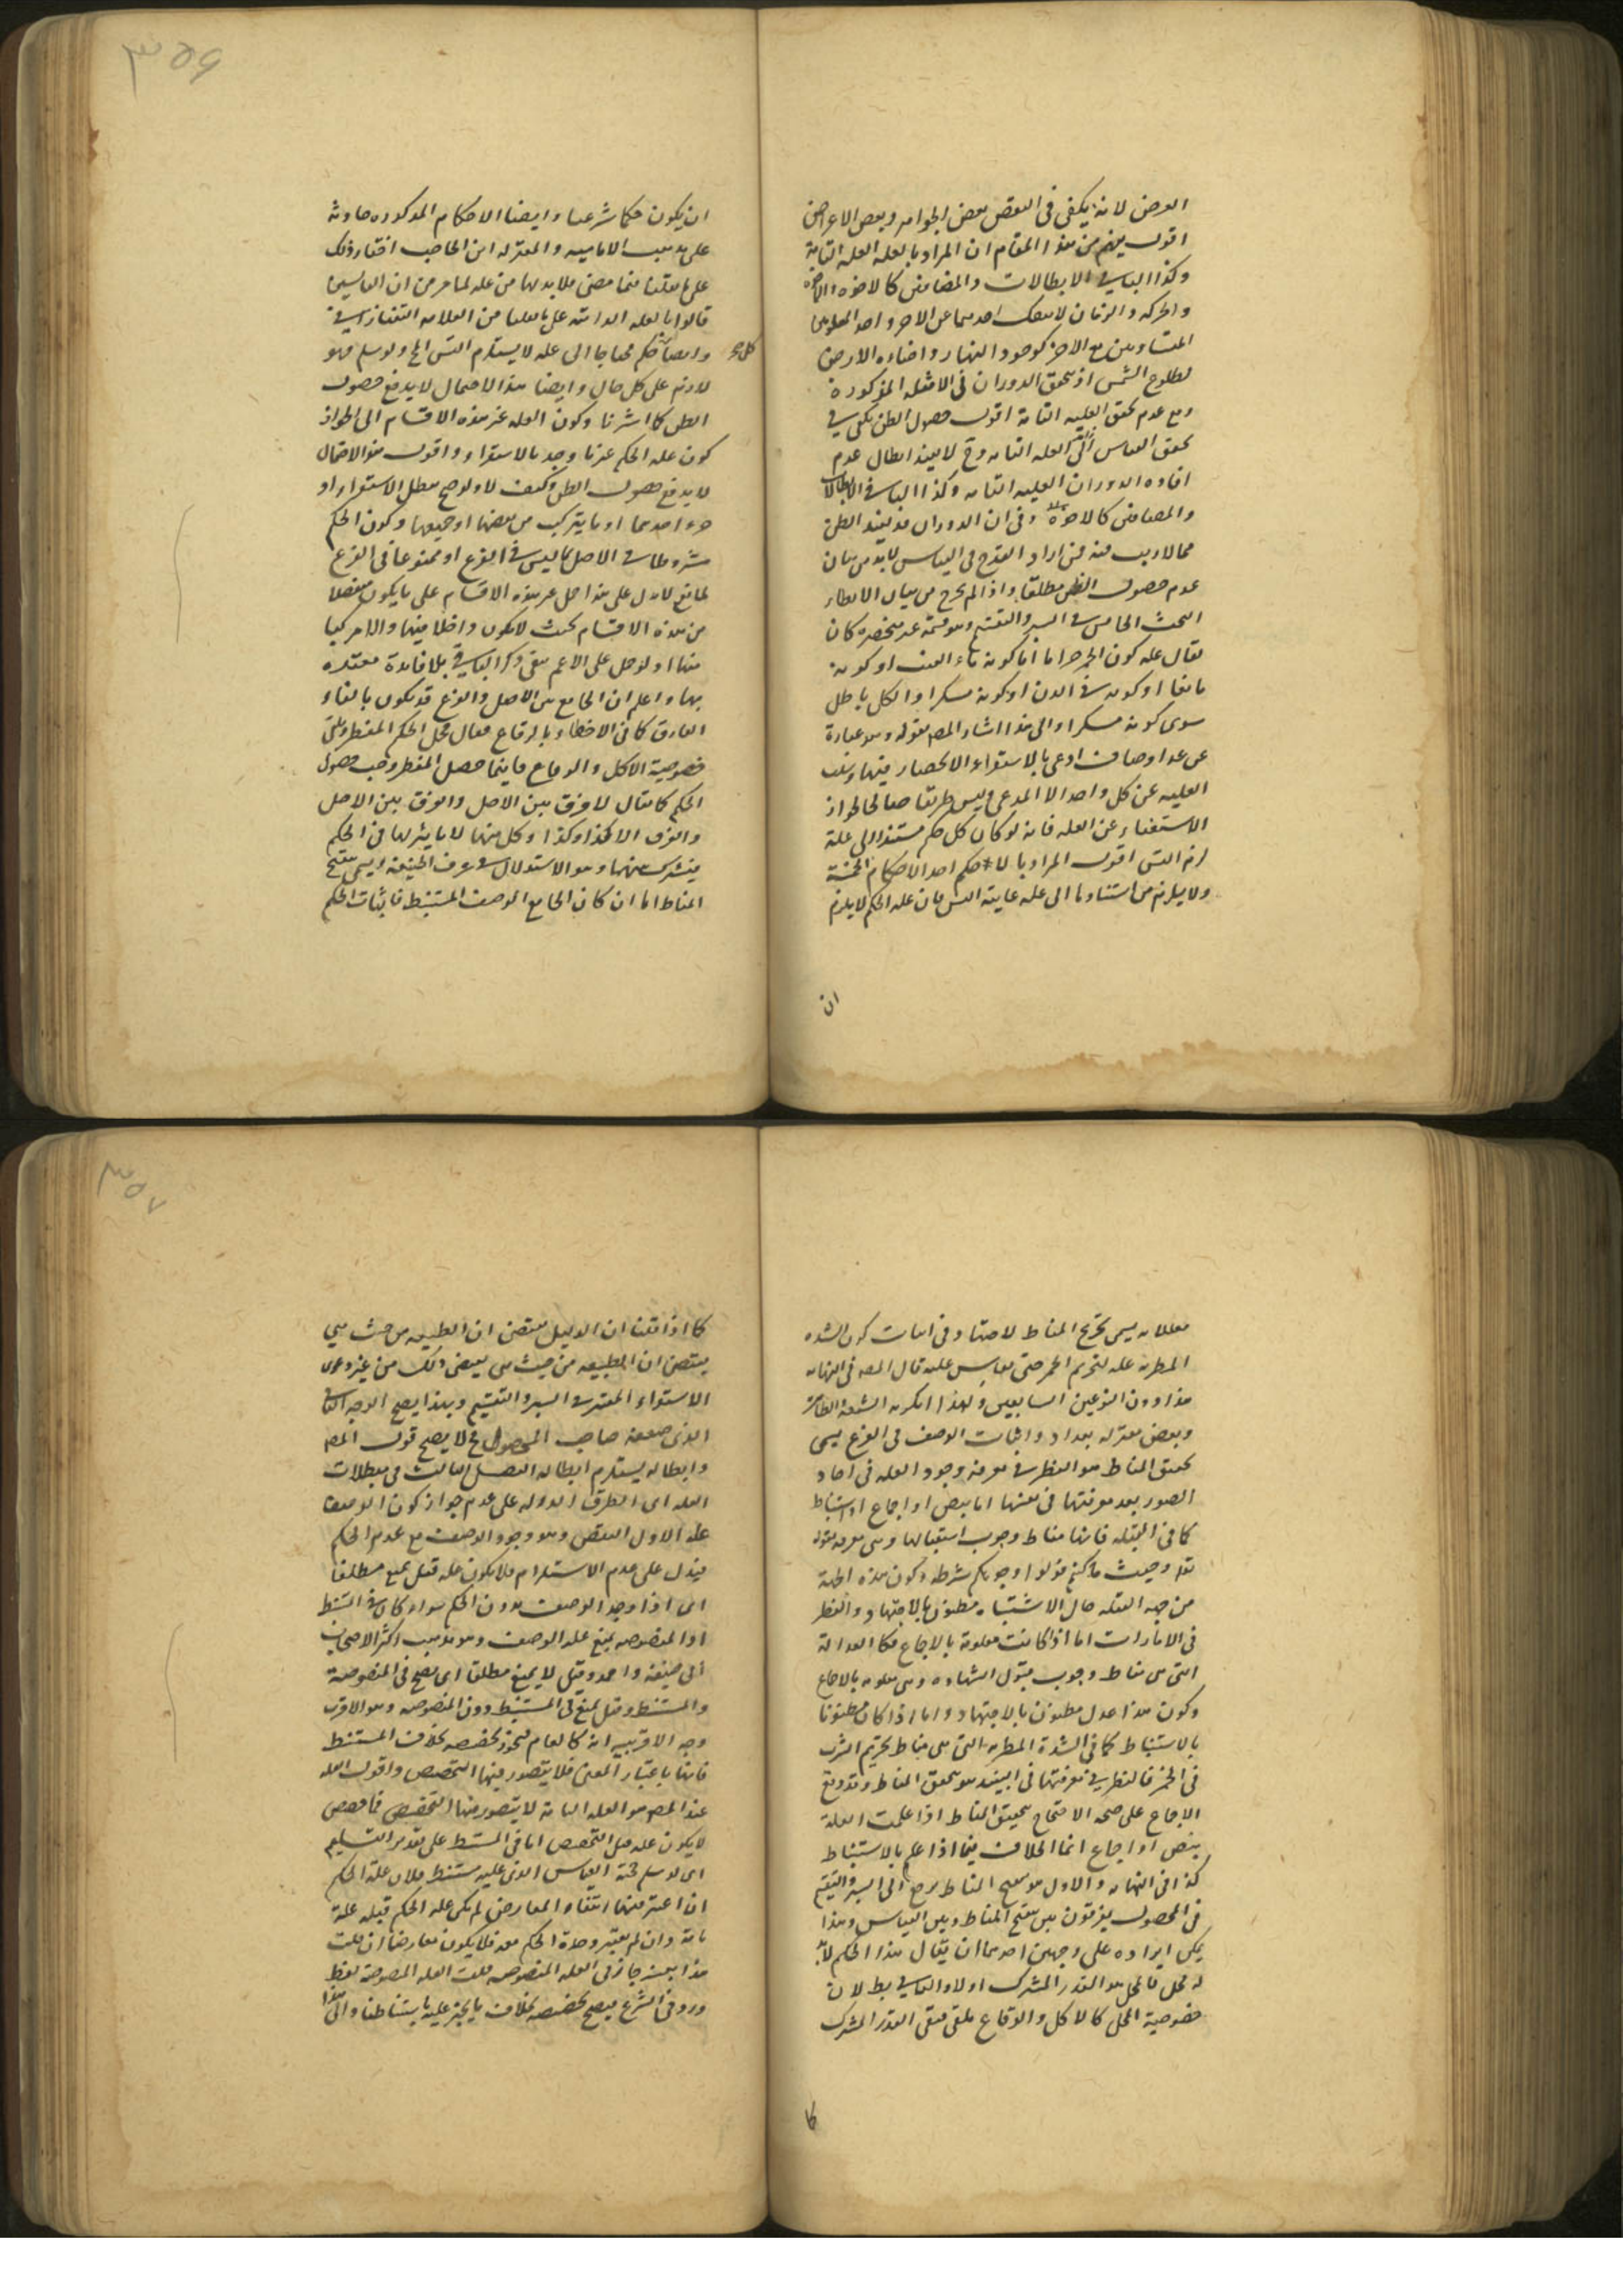 العرض لانه يكفى فى النقض بعض الجواهر وبعض الاعراض
اقول يفهم من هذا المقام ان المراد بالعلة العلة التامة
وكذا الباقى الابطالات والمضافين كالاخوة
والحركة والزمان لا ينفك احدهما عن الاخر واحد المعلولين
المتساويين مع الاخر كوجود النهار واضاءة الارض
لطلوع الشمس اذ يتحقق الدوران فى الامثلة المذكورة
مع عدم تحقق العلية التامة اقول حصول الظن يكفى فى
تحقق القياس العلة التامة وح لا يفيد ابطال عدم
افادة الدوران العلية التامة وكذا الباقى الابطالات
والمضافين كالاخوة وفى ان الدوران قد يفيد الظن
مما لا ريب فيه فمن اراد القدح فى القياس لابد من بيان
عدم حصول الظن مطلقا واذا لم يخرج من بيان الابطاء
البحث الخامس فى السبر والتقسيم وهو قسمة غير منحصرة كان
يقال علة كون الخمر حراما اما كونه ماء العنب او كونه
مايعا او كونه فى الدن او كونه مسكرا والكل باطل
سوى كونه مسكرا والى هذا اشار المص بقوله وهو عبارة
عن عد اوصاف ادعى بالاستقراء الانحصار فيها وسلب
العلية عن كل واحد الا المدعى وليس طريقا صالحا لجواز
الاستغناء عن العلة فانه لو كان كل حكم مستندا الى علة
لزم التس اقول المراد بالحكم احد الاحكام الخمسة
ولا يلزم من استنادها الى علة غاية التس فان علة الحكم لا يلزم
ان
٣٥٦
ان يكون حكما شرعيا وايضا الاحكام المذكورة حادثة
على مذهب الامامية والمعتزلة ابن الحاجب اختار ذلك
على ما نقلنا فيما مضى فلابد لها من علة لما مر من ان القايسين
قالوا بالعلة الباعثة على ما نقلنا من العلامة التفتازانى
وايضا كل حكم محتاجا الى علة لا يستلزم التس الخ ولو سلم فهو
لازم على كل حال وايضا هذا الاحتمال لا يدفع حصول
الظن كما اشرنا وكون العلة غير هذه الاقسام الى الجواز
كون علة الحكم غير ما وجد بالاستقراء واقول هذا الاحتمال
لا يدفع حصول الظن وكيف لا ولو صح بطل الاستقراء او
جزء احدهما او ما يتركب من بعضها او جميعها وكون الحكم
مشروطا فى الاصل بما ليس فى الفرع او ممنوعا فى الفرع
لمانع لا دل على هذا حمل غير هذه الاقسام على ما يكون منفصلا
من هذه الاقسام بحيث لا يكون داخلا فيها ولا مركبا
منها ولو حمل على الاعم بقى ذكر الباقى بلا فائدة معتدة
بها واعلم ان الجامع بين الاصل والفرع قد يكون بالغاء
الفارق كما فى الافطار بالوقاع فقال محل الحكم المفطر ويلقى
خصوصية الاكل والوقاع فاينما حصل المفطر وجب حصول
الحكم كما يقال لا فرق بين الاصل والفرق بين الاصل
والفرع الا كذا وكذا وكل منهما لا تاثير لها فى الحكم
فيشترك بينهما وهو الاستدلال فى عرف الحنفية ويسمى تنقيح
المناط اما ان كان الجامع الوصف المستنبط فاثبات الحكم
٣٥٧
معللا به يسمى تخريج المناط لاجتهاد فى اثبات كون الشدة
المطربة علة لتحريم الخمر حتى يقاس عليه قال المص فى النهاية
هذا دون النوعين السابقين ولهذا انكره الشيعة والظاهرية
وبعض معتزلة بغداد واثبات الوصف فى الفرع يسمى
تحقيق المناط هو النظر فى معرفة وجود العلة فى احاد
الصور بعد معرفتها فى نفسها اما بنص او اجماع او استنباط
كما فى القبلة فانها مناط وجوب استقبالها وهى معرفة بقوله
تعه وحيث ما كنتم فولوا وجوهكم شطره وكون هذه الجهة
من جهة القبلة حال الاشتباه مظنون بالاجتهاد والنظر
فى الامارات اما اذا كانت معلومة بالاجماع فكالعدالة
التى هى مناط وجوب قبول الشهادة وهى معلومة بالاجماع
وكون هذا عدل مظنون بالاجتهاد واما اذا كان مظنونا
بالاستنباط كما فى الشدة المطربة التى هى مناط تحريم الشرب
فى الخمر فالنظر فى معرفتها فى النبيذ هو تحقق المناط وقد وقع
الاجماع على صحة الاحتجاج بتحقيق المناط اذا علمت العلة
بنص او اجماع انما الخلاف فيما اذا علم بالاستنباط
كذا فى النهاية والاول هو تنقيح المناط يرجع الى السبر والتقسيم
فى المحصول يفرقون بين تنقيح المناط وبين القياس وهذا
يمكن ايراده على وجهين احدهما ان يقال هذا الحكم لابد
له محل فالمحل هو القدر المشترك اولا والثانى بطلان
خصوصية المحل كالاكل والوقاع ملغى فبقى القدر المشترك
كما
كما اذا قلنا ان الدليل يقتضى ان الطبيعة من حيث هى
يقتضى ان الطبيعة من حيث هى يقتضى ذلك من غير دعوى
الاستقراء المعتبر فى السبر والتقسيم وبهذا يصح الوجه الثانى
الذى ضعفه صاحب المحصول فح لا يصح قول المص
وابطاله يستلزم ابطاله الفصل الثالث فى مبطلات
العلة اى الطرق الدالة على عدم جواز كون الوصف
علة الاول النقض وهو وجود الوصف مع عدم الحكم
فيدل على عدم الاستلزام فلا يكون علة قيل يمنع مطلقا
اى اذا وجد الوصف بدون الحكم سواء كان فى المستنبط
او المنصوصة يمنع علة الوصف وهو مذهب اكثر الاصحاب
ابى حنيفة واحمد وقيل لا يمنع مطلقا اى يصح فى المنصوصة
والمستنبط وقيل يمنع فى المستنبط دون المنصوصة وهو الاقرب
وجه الاقربية انه كالعام فيجوز تخصيصه بخلاف المستنبط
فانها باعتبار المعنى فلا يتصور فيها التخصيص واقول العلة
عند المص هو العلة التامة لا يتصور فيها التخصيص فما خصص
لا يكون علة قبل التخصيص اما فى المستنبط على تقدير التسليم
اى لو سلم صحة القياس الذى عليه مستنبط فلان علة الحكم
ان اعتبر فيها انتفاء المعارض لم يكن علة الحكم قبله علة
تامة وان لم يعتبر وحدة الحكم معه فلا يكون معارضا ان قلت
هذا بعينه جاز فى العلة المنصوصة قلت العلة المنصوصة لفظ
ورد فى الشرع فيصح تخصيصه بخلاف ما يجئ علية باستنباطنا والى هذا